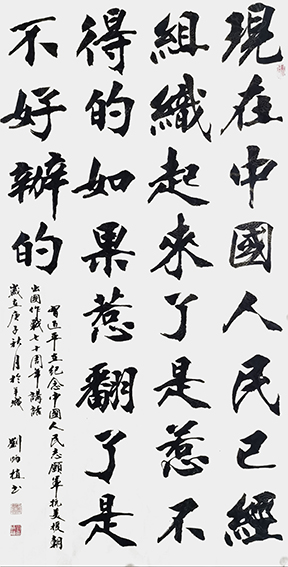 現在中國人民已經
組織起來了是惹不
得的如果惹翻了是
不好辦的
習近平在紀念中國人民志願軍抗美援朝
出國作戰七十周年講話
歲在庚子秋月於城
劉植書